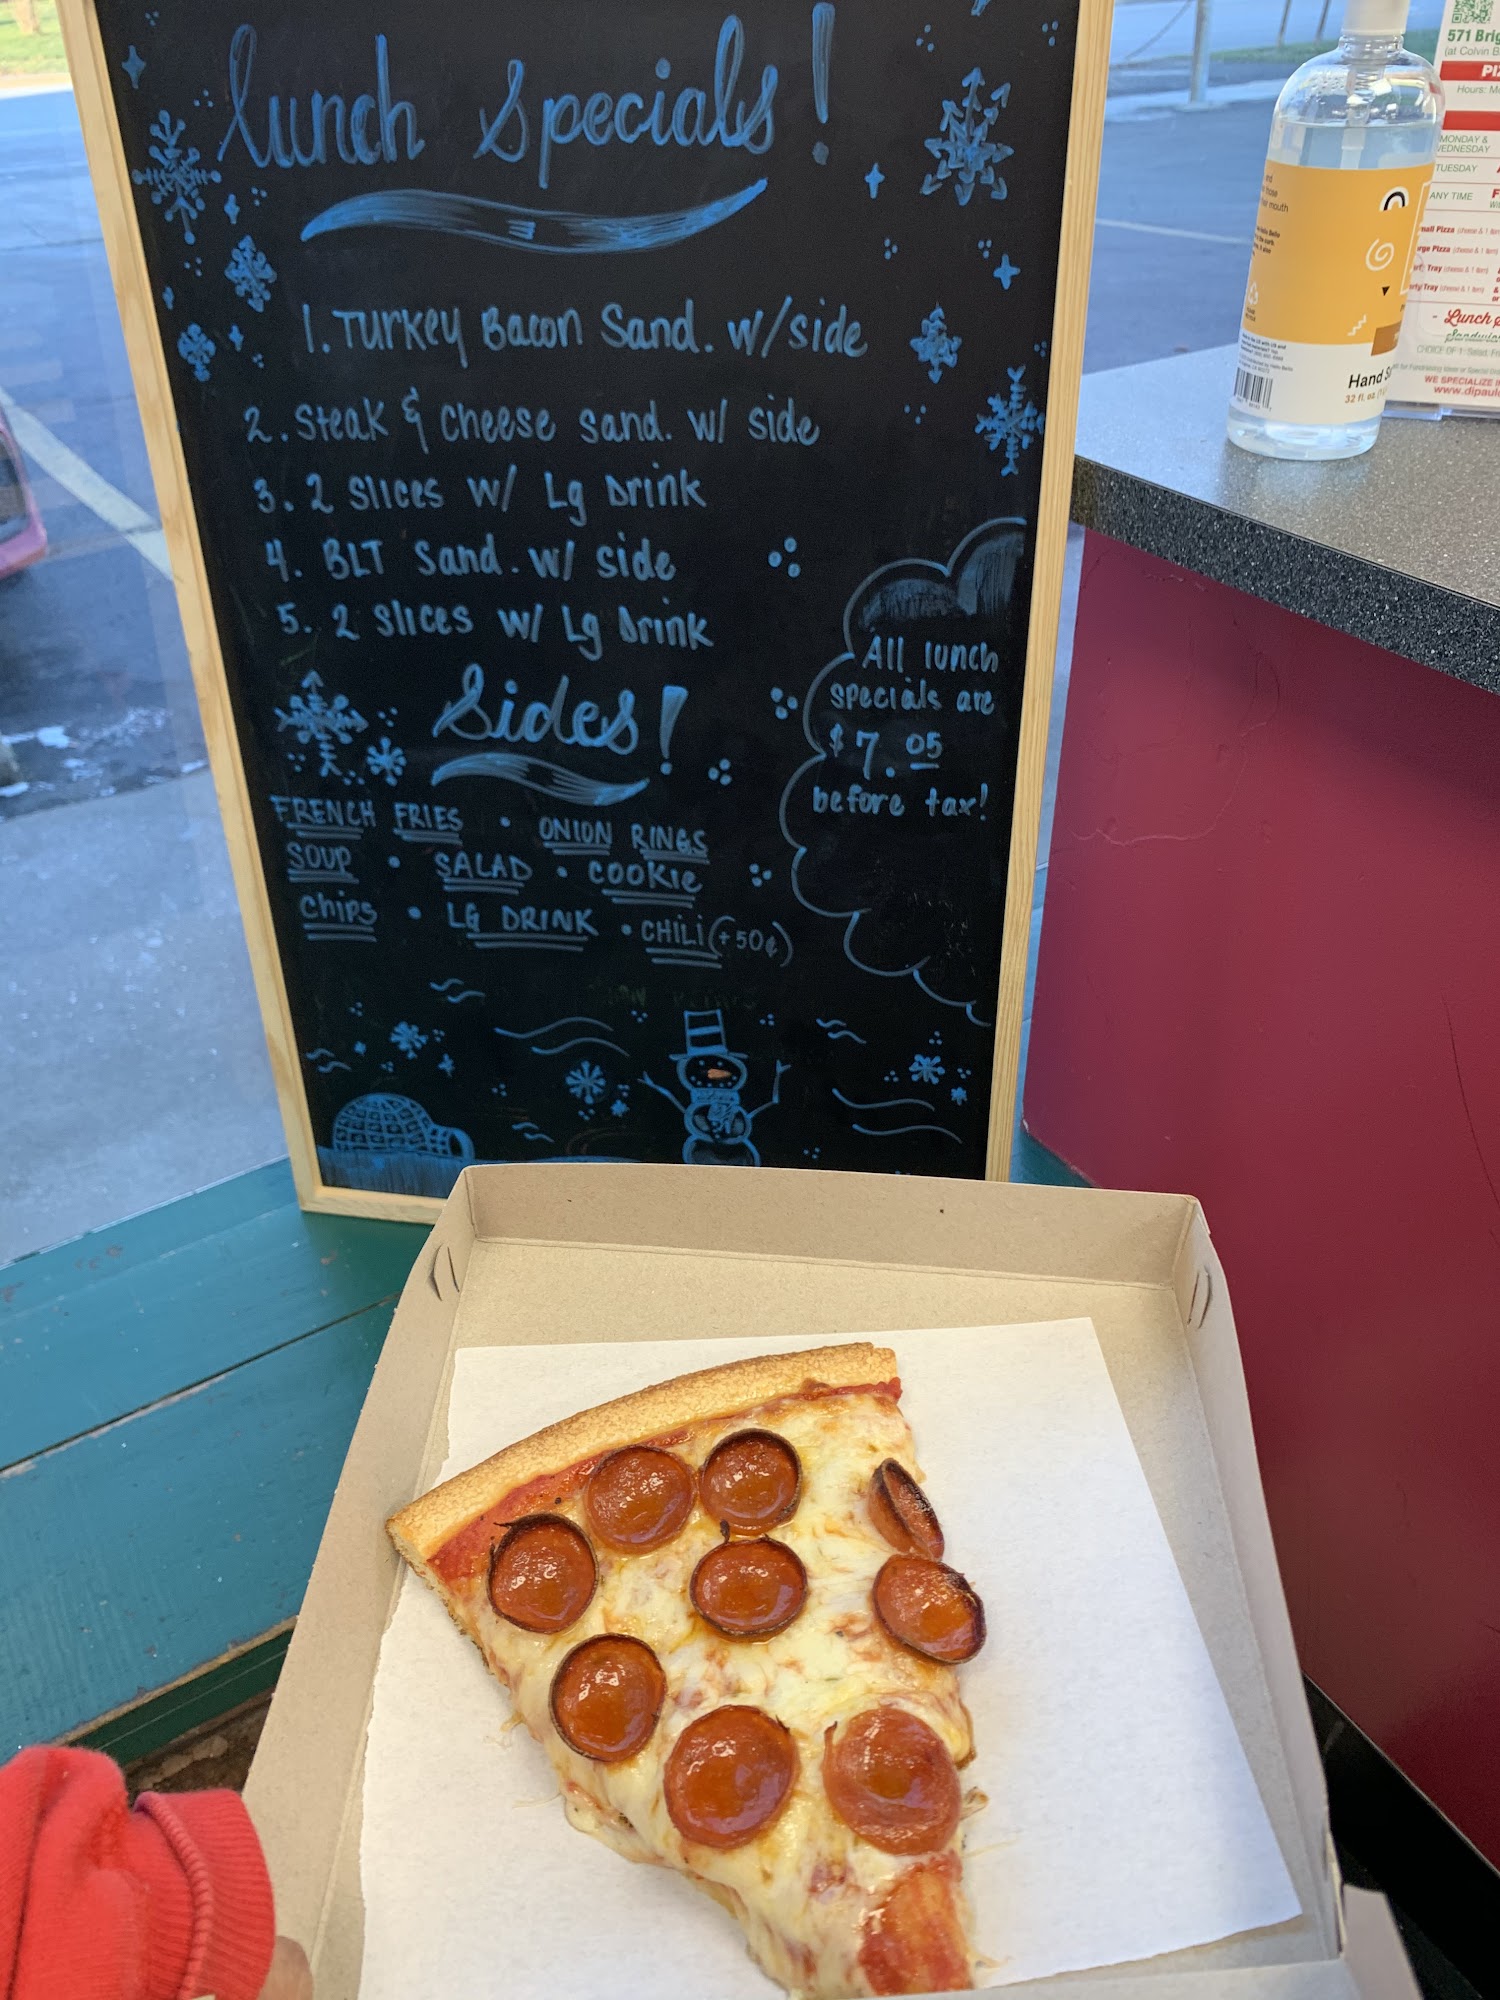 lunch Specials!
1. Turkey Bacon Sand. w/side
2. Steak & Cheese Sand. w/ side
3. 2 Slices w/ Lg Drink
4. BLT Sand. w/ side
5. 2 Slices w/ Lg Drink
All lunch
specials are
$7.05
before tax!
Sides!
FRENCH FRIES • ONION RINGS
SOUP • SALAD • COOKIE
Chips • LG DRINK • CHILI (+50¢)
Hand
32 fl. oz.
571 Brig
(at Colvin B
PI
Hours: M
MONDAY &
WEDNESDAY
TUESDAY
ANY TIME
mall Pizza (cheese & 1 item)
arge Pizza (cheese & 1 item)
Tray (cheese & 1 item)
arty Tray (cheese & 1 item)
- Lunch
Sandwic
CHOICE OF 1: Salad, Fr
WE SPECIALIZE I
www.dipaul